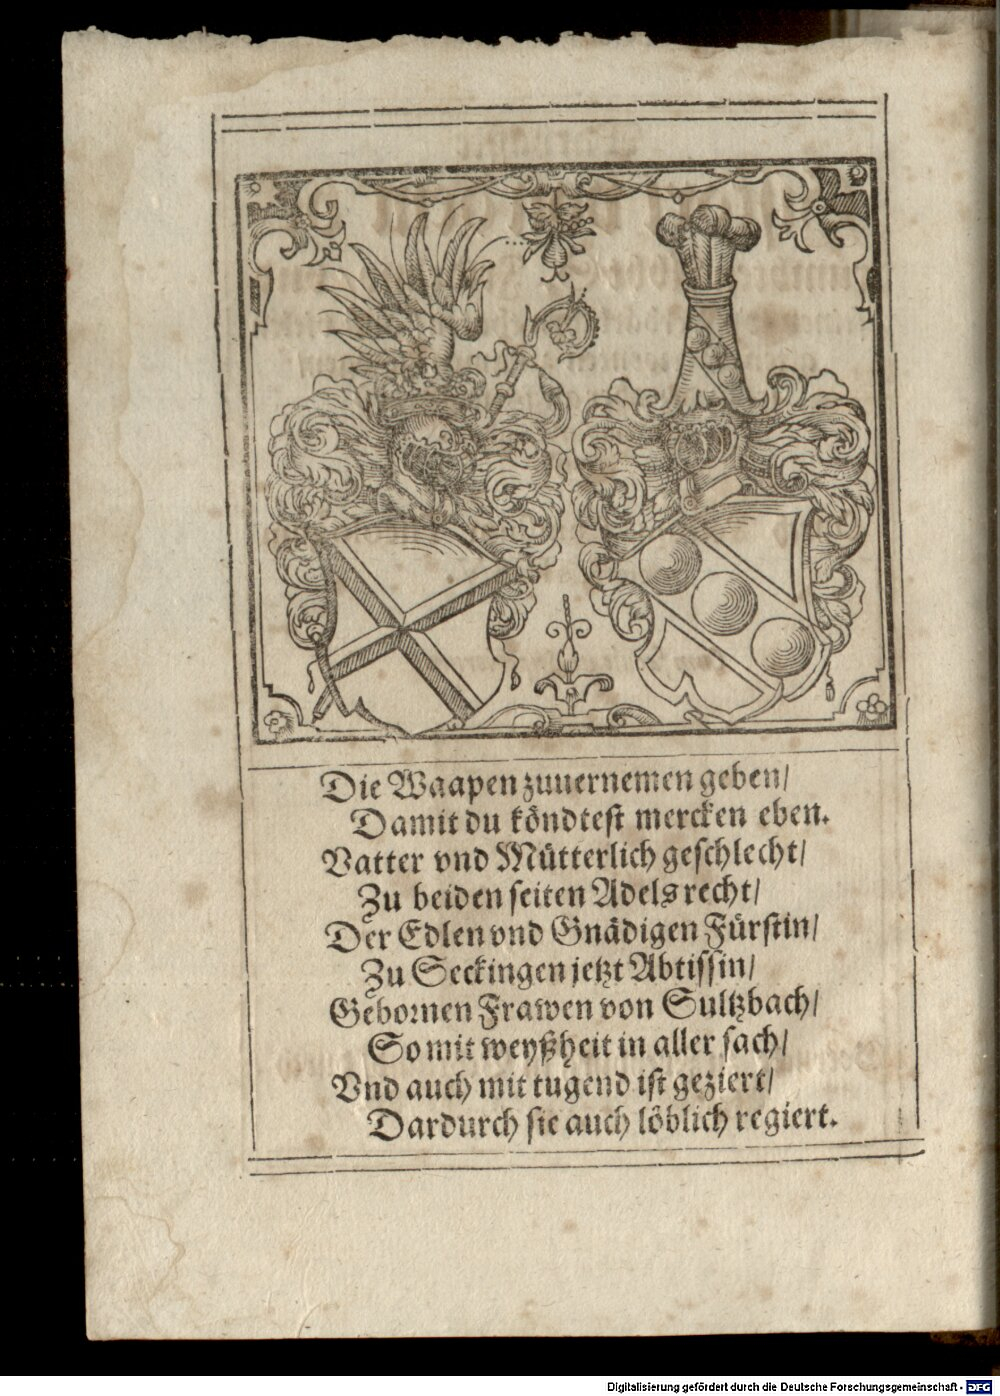 Die Waapen zuuernemen geben/
Damit du köndtest mercken eben.
Vatter vnd Mütterlich geschlecht/
Zu beiden seiten Adels recht/
Der Edlen vnd Gnädigen Fürstin/
Zu Seckingen jetzt Abtissin/
Gebornen Frawen von Sultzbach/
So mit weyßheit in aller sach/
Vnd auch mit tugend ist geziert/
Dardurch sie auch löblich regiert.
Digitalisierung gefördert durch die Deutsche Forschungsgemeinschaft - DFG